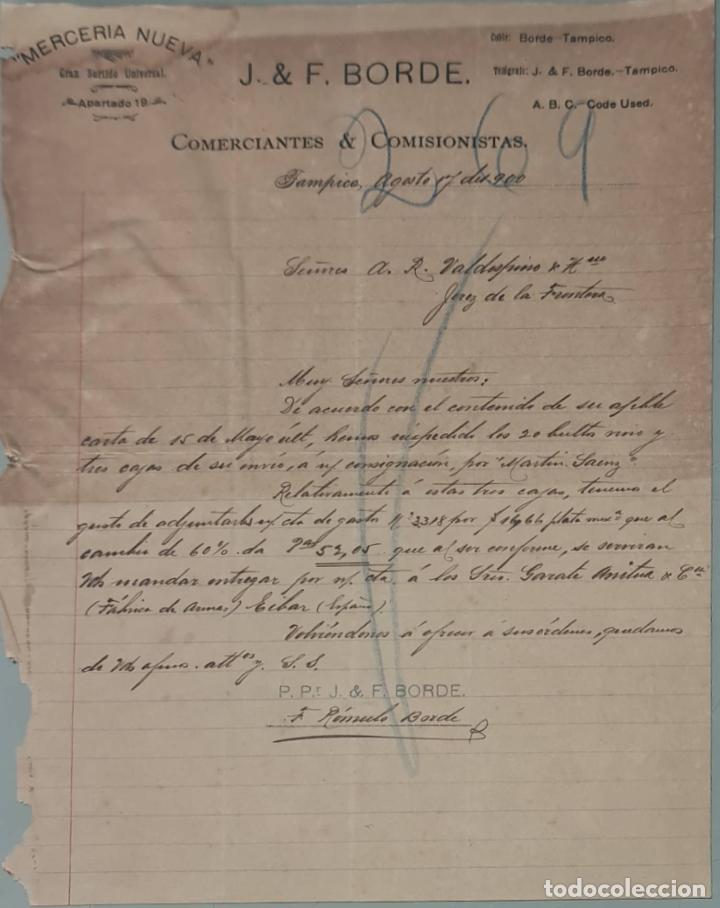 "MERCERIA NUEVA"
Gran Surtido Universal.
Apartado 19
J. & F. BORDE.
Cable: Borde-Tampico.
Telégrafo: J. & F. Borde.-Tampico.
A. B. C.-Code Used.
COMERCIANTES & COMISIONISTAS.
269
Tampico, Agosto 17 de 1900
Señores A. R. Valdespino & Hno
Jerez de la Frontera
Muy Señores nuestros:
De acuerdo con el contenido de su apble
carta de 15 de Mayo últ, hemos recpedido los 20 bultos vino y
tres cajas de su envío, á n/ consignación, por "Martin Saenz"
Relativamente á estas tres cajas, tenemos el
gusto de adjuntarles n/ cta de gasto Nº 3318 por $ 16,66 plata mexª que al
cambio de 60% da Ptas 52,05 que al ser conforme, se serviran
Vds mandar entregar por n/ cta á los Sres. Garate Anitua & Cía
(Fábrica de Armas) Eibar (España)
Volviéndonos á ofrecer á sus órdenes, quedamos
de Vds afmos. attos y S. S.
P. Pr J. & F. BORDE.
F. Rómulo Borde
todocoleccion